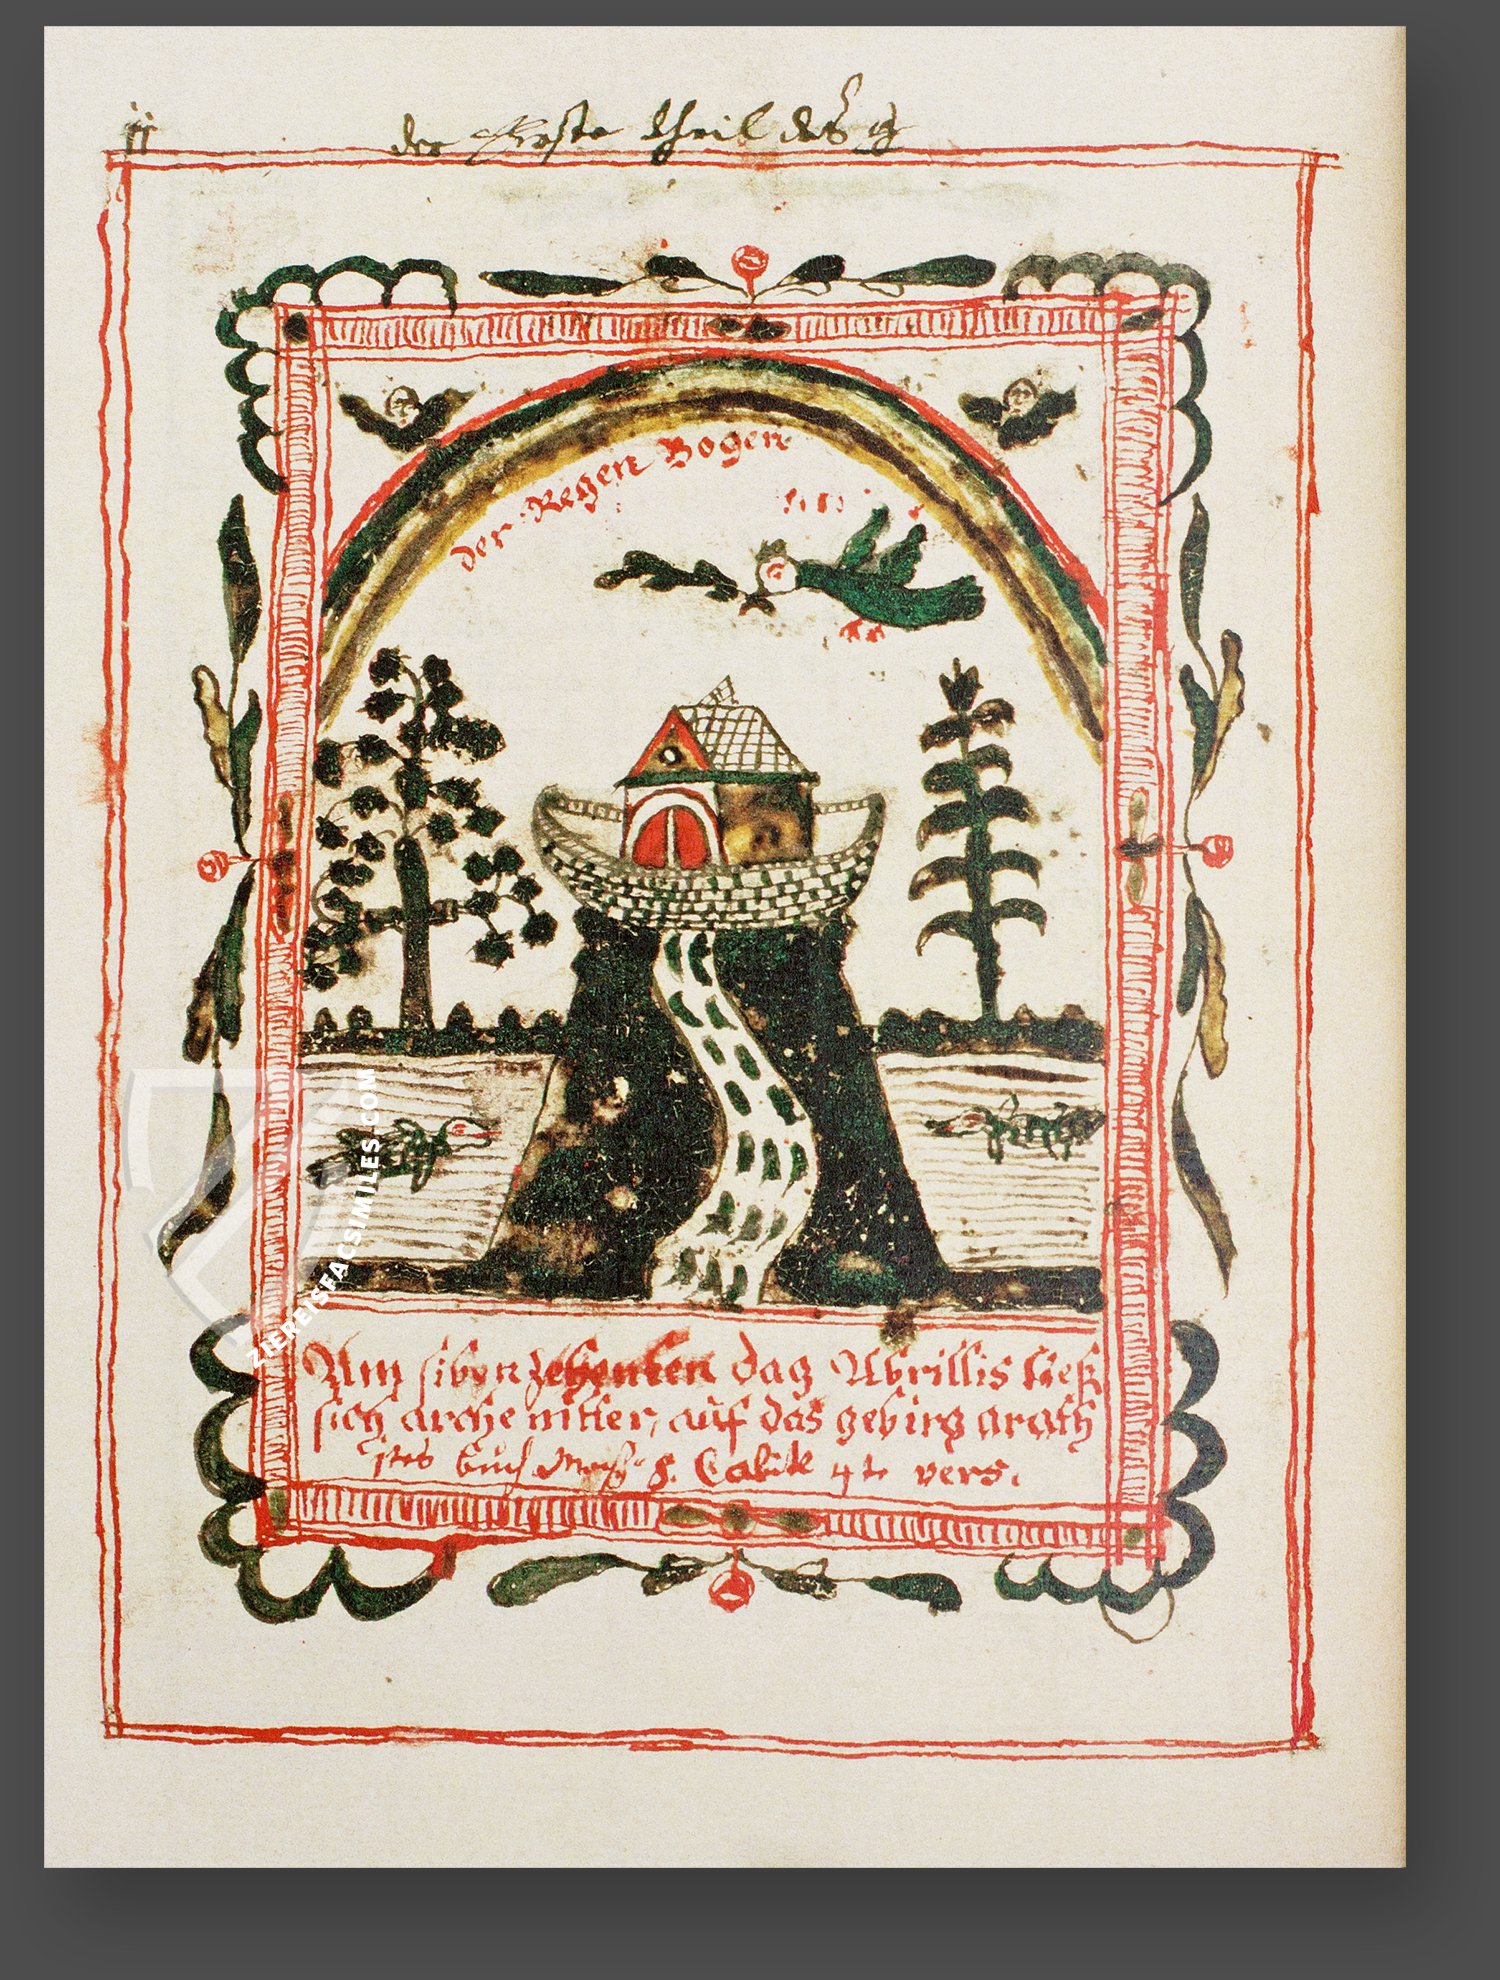 der Erste theil des
der Regen Bogen
Am sibenzehenten dag Abrillis ließ
sich arche nitter, auf das gebirg arath
1stes buch Mosy 8. Cabitl 4te vers.
ZIEREISFACSIMILES.COM